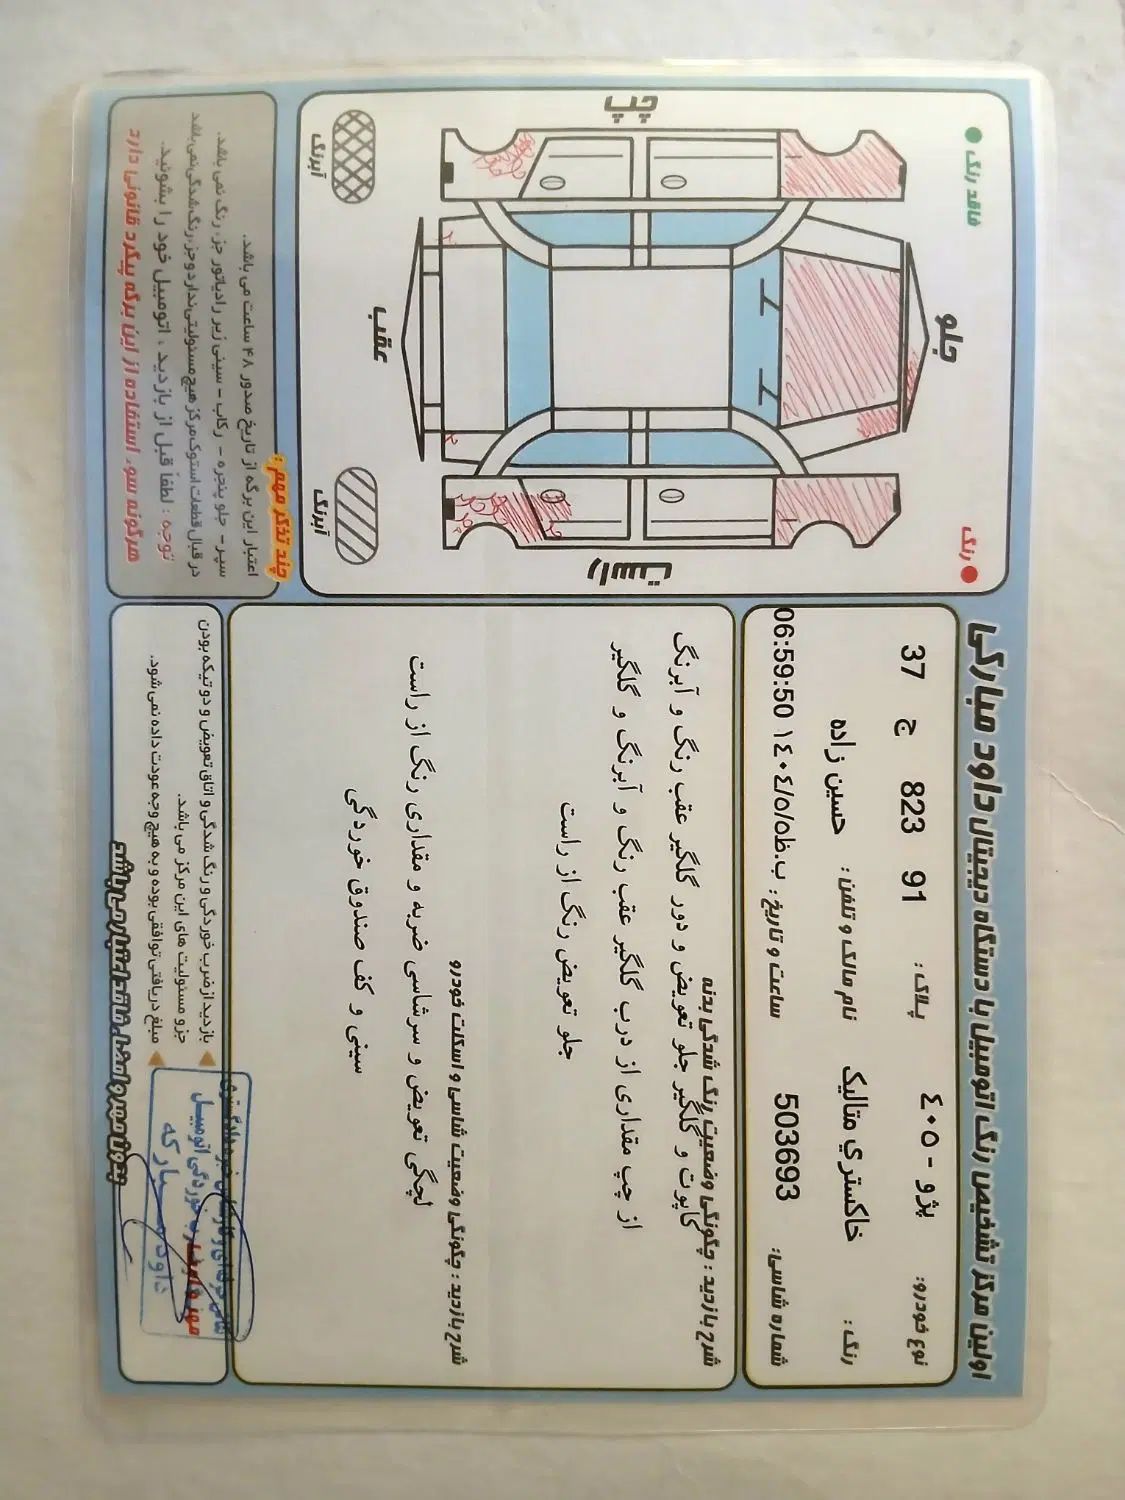 اولین مرکز تشخیص رنگ اتومبیل با دستگاه دیجیتال داود مبارکی
نوع خودرو: پژو - ٤٠٥
پلاک: 37 ج 823 91
رنگ: خاکستري متاليک
نام مالک و تلفن: حسین زاده
شماره شاسی: 503693
ساعت و تاریخ: 06:59:50 ١٤٠٤/٥/٥ب.ظ
شرح بازدید: چگونگی وضعیت رنگ شدگی بدنه
کاپوت و گلگیر جلو تعویض و دور گلگیر عقب رنگ و آبرنگ
از چپ مقداری از درب گلگیر عقب رنگ و آبرنگ و گلگیر
جلو تعویض رنگ از راست
شرح بازدید: چگونگی وضعیت شاسی و اسکلت خودرو
لچگی تعویض و سرشاسی ضربه و مقداری رنگ از راست
سینی و کف صندوق خوردگی
بازدید از ضرب خوردگی و رنگ شدگی و اتاق تعویض و دو تیکه بودن
جزو مسئولیت های این مرکز می باشد.
مبلغ دریافتی توافقی بوده و به هیچ وجه عودت داده نمی شود.
بدون مهر و امضاء فاقد اعتبار می باشد
فاقد رنگ
رنگ
جلو
چپ
راست
عقب
آبرنگ
آبرنگ
چند تذکر مهم:
اعتبار این برگه از تاریخ صدور ۴۸ ساعت می باشد.
سپر - جلو پنجره - رکاب - سینی زیر رادیاتور جز، رنگ نمی باشد.
در قبال قطعات استوک مرکز هیچ مسئولیتی ندارد و جز، رنگ شدگی نمی باشد
توجه: لطفاً قبل از بازدید، اتومبیل خود را بشوئید.
هرگونه سو، استفاده از این برگه پیگرد قانونی دارد